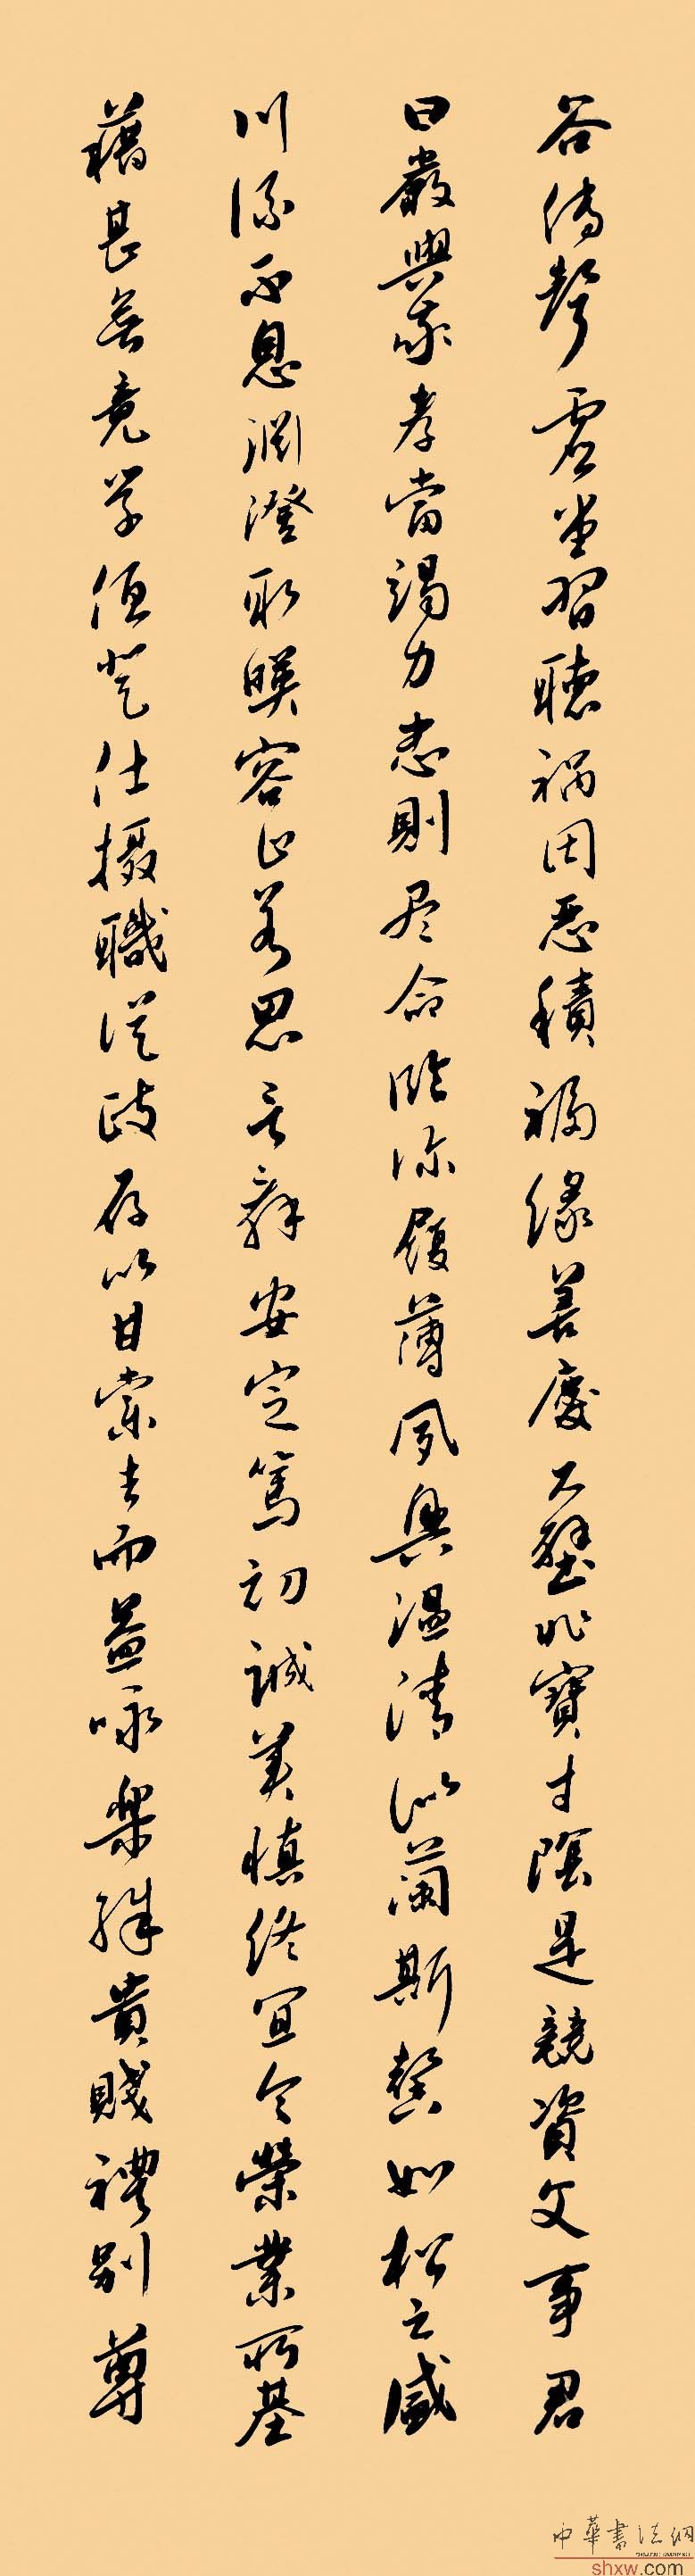 谷傳聲虛堂習聽禍因惡積福緣善慶尺璧非寶寸陰是競資父事君
曰嚴與敬孝當竭力忠則尽命臨深履薄夙興温清似蘭斯馨如松之盛
川流不息淵澄取暎容止若思言辭安定篤初誠美慎終宜令榮業所基
藉甚無竟學優登仕攝職從政存以甘棠去而益咏樂殊貴賤禮別尊
中華書法網
shxw.com